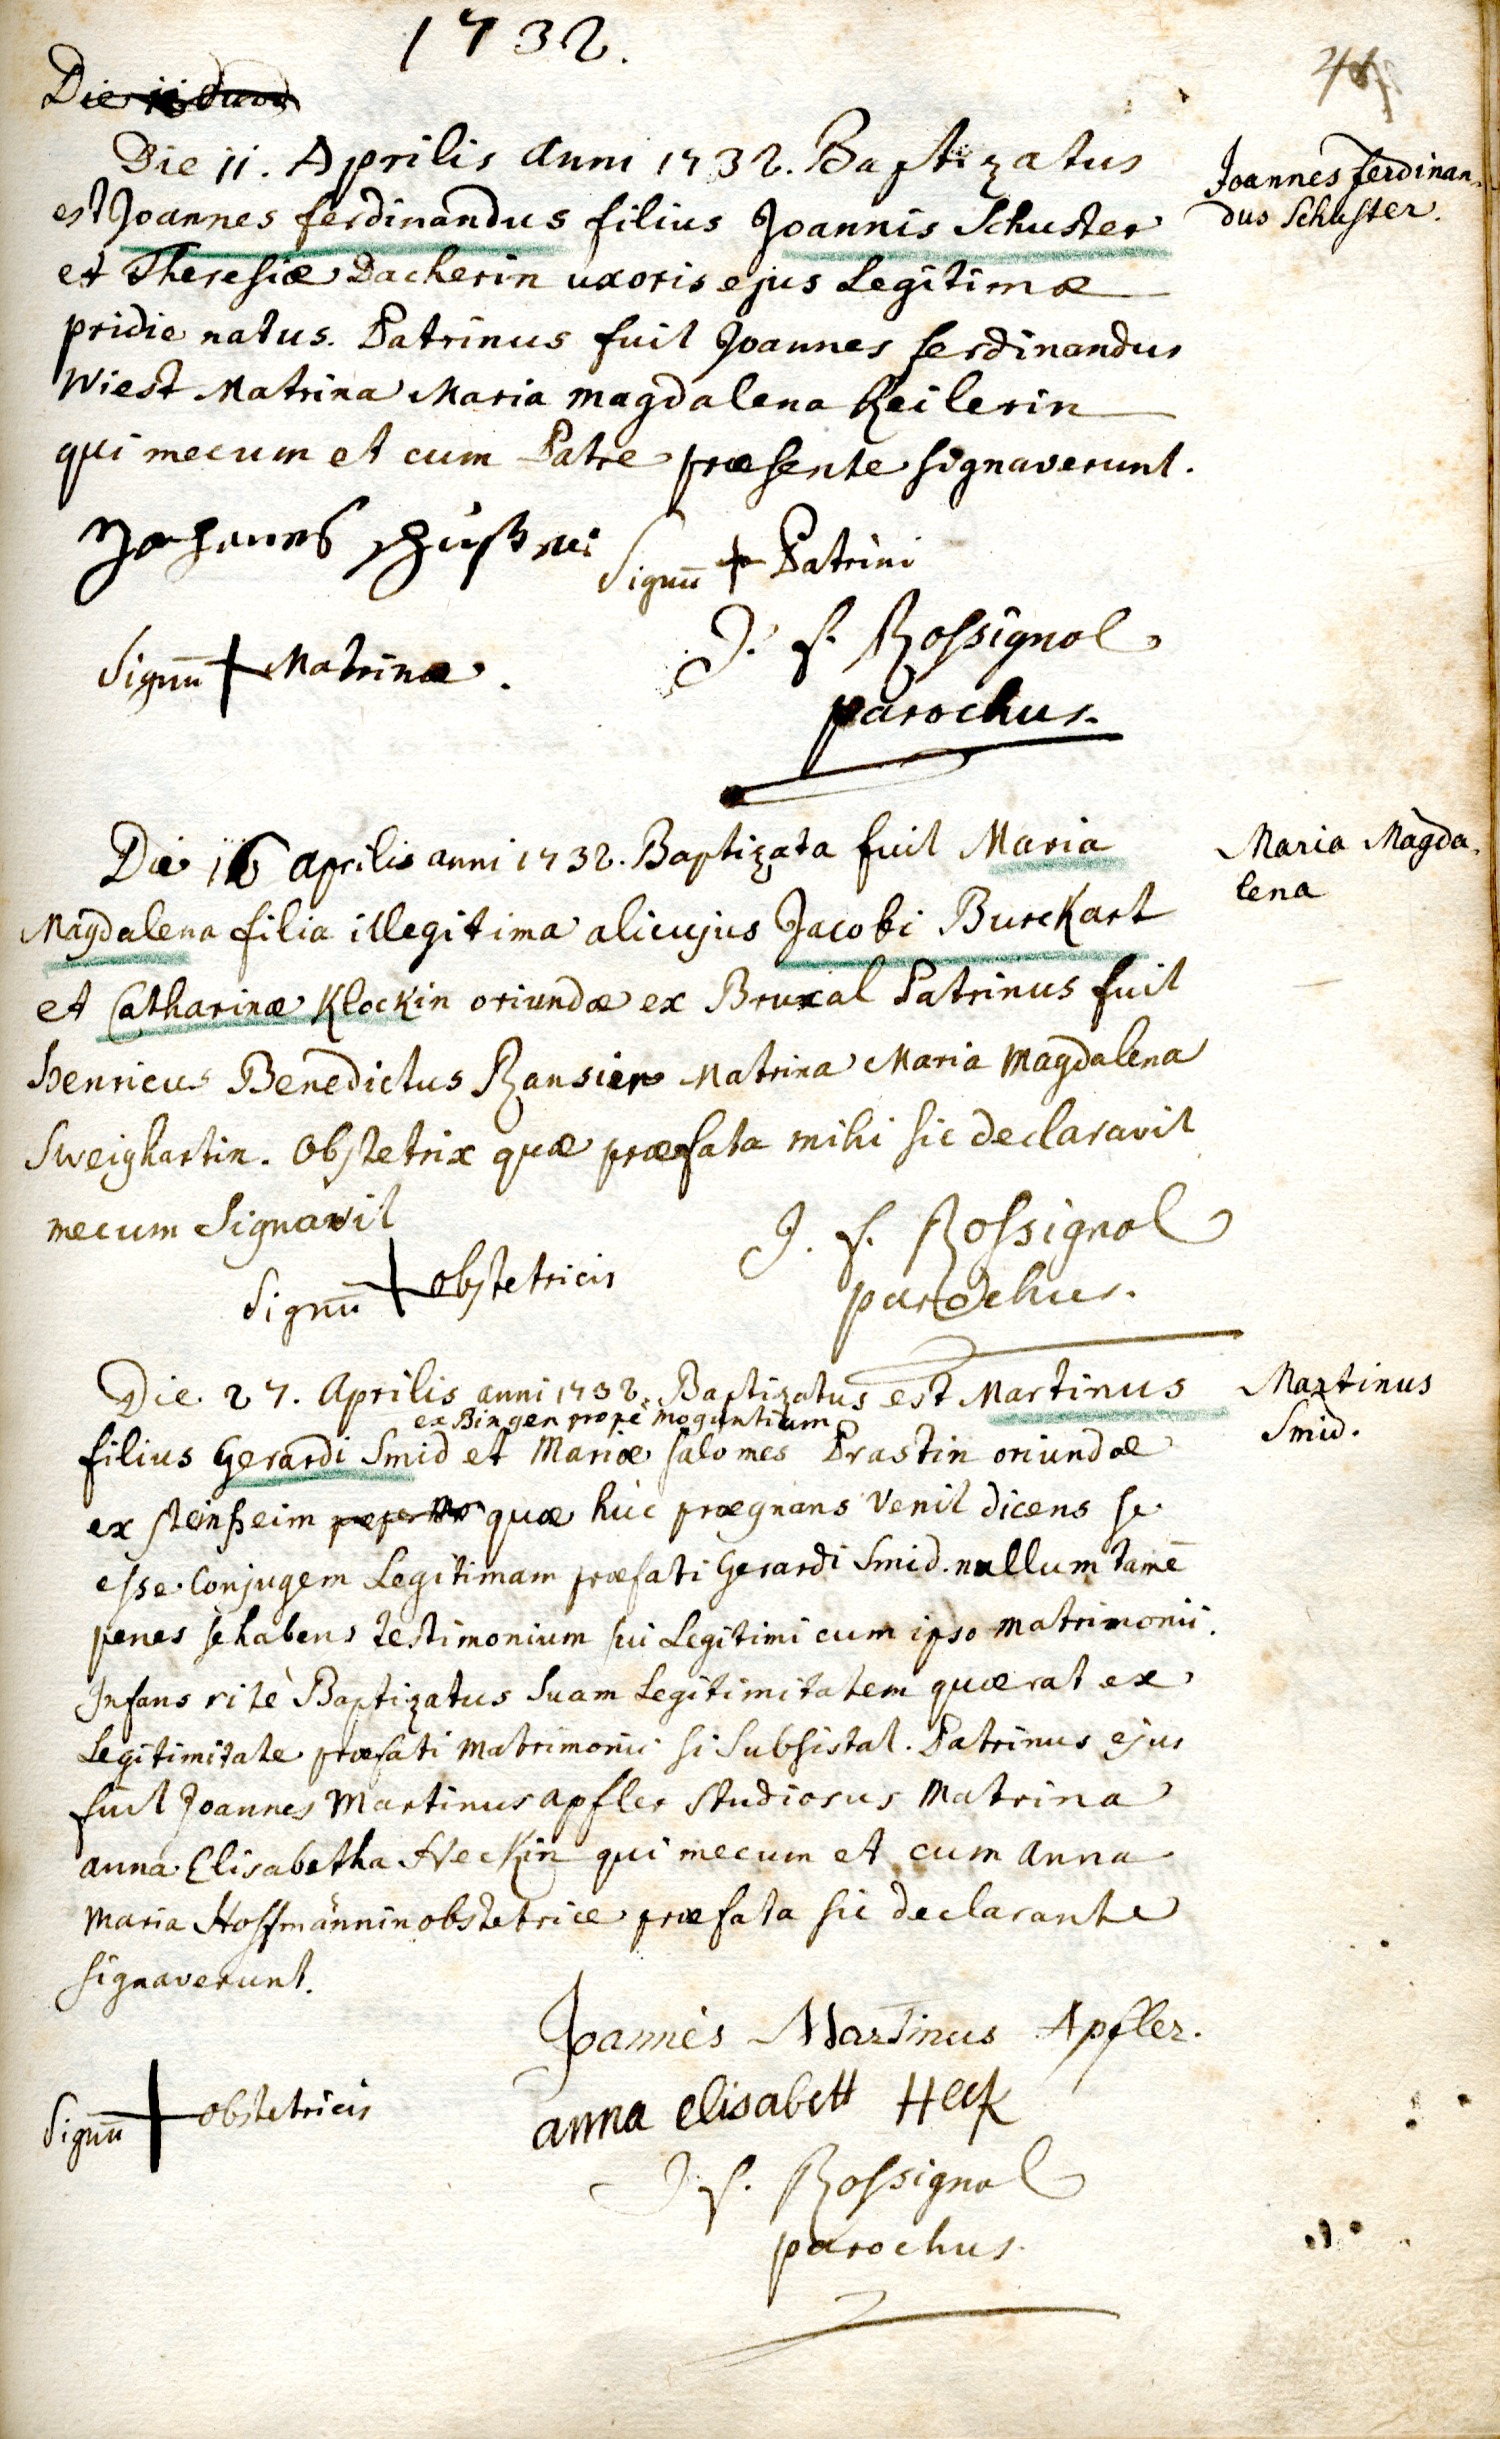 1732.
Die
Die 11. Aprilis anni 1732. Baptizatus
est Joannes ferdinandus filius Joannis Schuster
et Theresiæ Dacherin uxoris ejus Legitimæ
pridie natus. Patrinus fuit Joannes ferdinandus
Wiest Matrina Maria Magdalena Keilerin
qui mecum et cum Patre præsente signaverunt.
Joannes ferdinan-
dus Schuster.
Johannes
Signū + Patrini
Signū + Matrinæ.
J. f. Rossignol
parochus.
Die 16 aprilis anni 1732. Baptizata fuit Maria
Magdalena filia illegitima alicujus Jacobi Burckart
et Catharinæ Klockin oriundæ ex Bruxal Patrinus fuit
henricus Benedictus Ransier Matrina Maria Magdalena
Sweighartin. Obstetrix quæ præfata mihi sic declaravit
mecum Signavit
Maria Magda-
lena
Signū + obstetricis
J. f. Rossignol
parochus.
Die 27. Aprilis anni 1732. Baptizatus est Martinus
ex Bingen propè moguntiam
filius Gerardi Smid et Mariæ salomes Prastin oriundæ
ex steinheim quæ hùc prægnans venit dicens se
esse Conjugem Legitimam præfati Gerardi Smid. nullum tamē
penes se habens testimonium sui Legitimi cum ipso matrimonii.
Infans ritè Baptizatus suam Legitimitatem quærat ex
Legitimitate præfati matrimonii si subsistat. Patrinus ejus
fuit Joannes Martinus apfler studiosus Matrina
anna Elisabetha Heckin qui mecum et cum anna
Maria Hoffmännin obstetrice præfata sic declarante
signaverunt.
Martinus
Smid.
Joannes Martinus Apfler.
anna elisabett Heck
Signū + obstetricis
J. f. Rossignol
parochus.